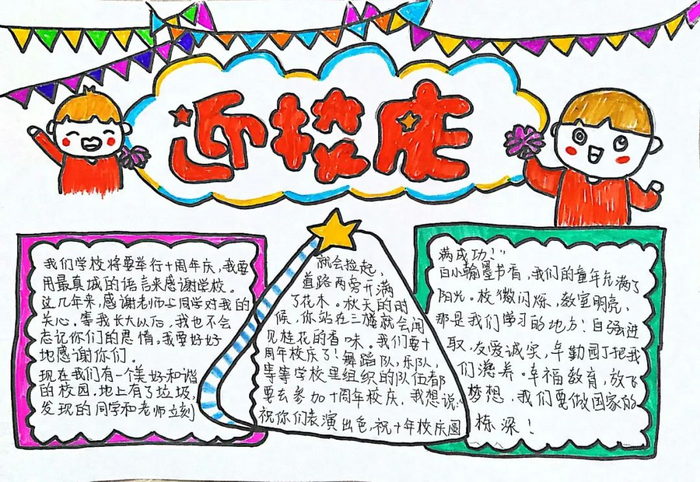 迎校庆
我们学校将要举行十周年庆，我要
用最真城的语言来感谢学校。
这几年来，感谢老师与同学对我的
关心，等我长大以后，我也不会
忘记你们的恩情，我要好好
地感谢你们。
现在我们有一个美好和谐
的校园，地上有了垃圾，
发现的同学和老师立刻
就会捡起，
道路两旁开满
了花木。秋天的时
候，你站在三楼就会闻
见桂花的香味。我们要十
周年校庆了！舞蹈队、乐队，
等等学校里组织的队伍都
要去参加十周年校庆，我想说：
祝你们表演出色，祝十年校庆圆
满成功！
白小翰墨书有，我们的童年充满了
阳光。校微闪烁，教室明亮，
那是我们学习的地方！自强进
取，友爱诚实，辛勤园丁把我
们滋养。幸福教育，放飞
梦想，我们要做国家的
栋深！